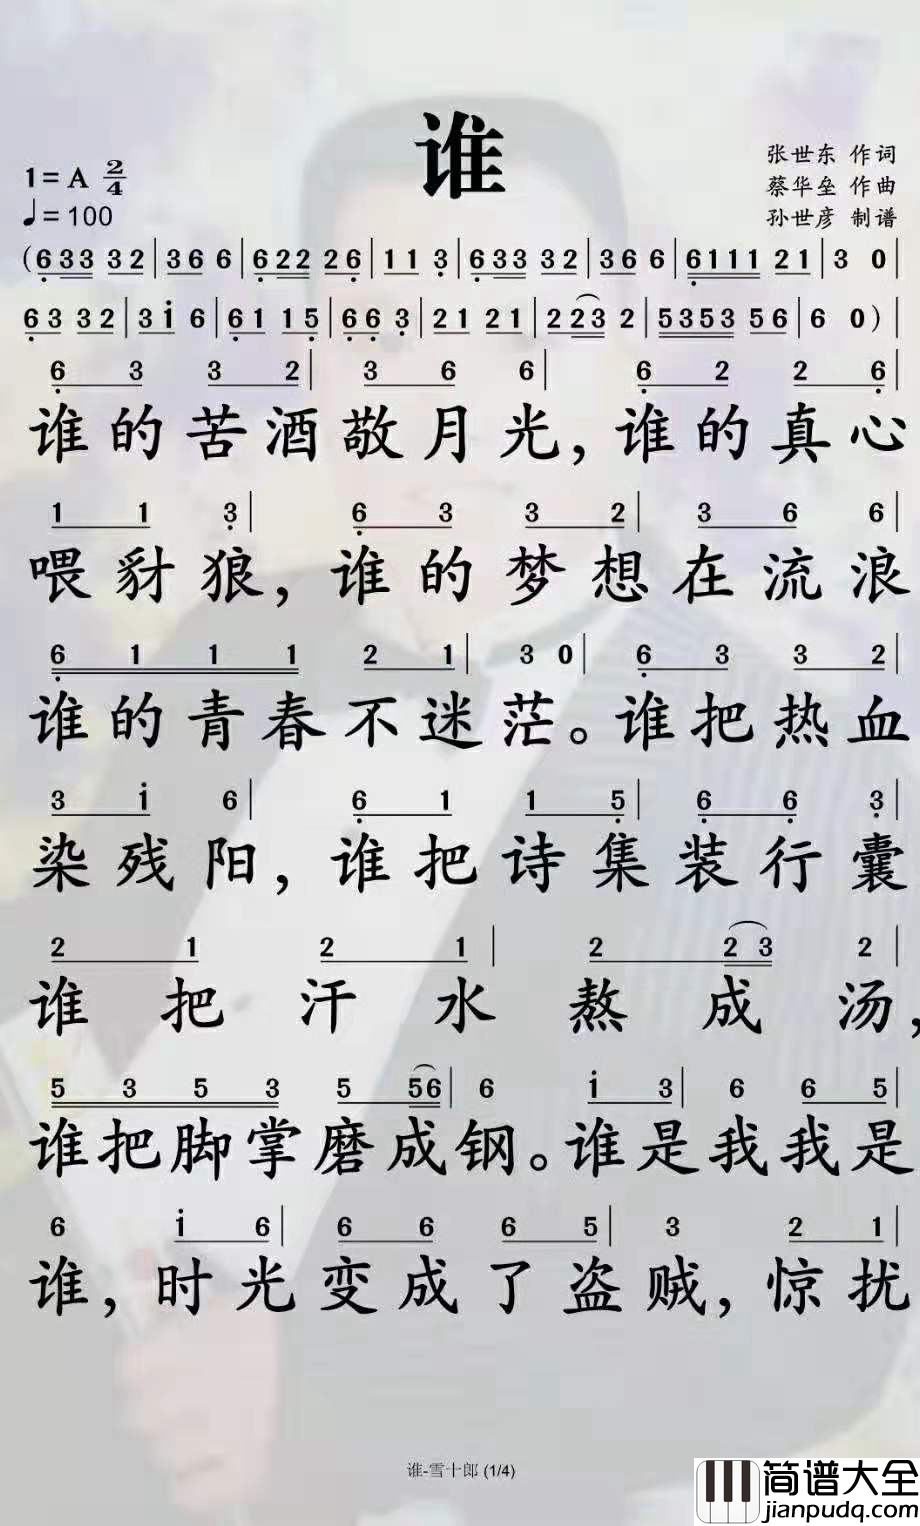 谁
1=A 2/4
♩=100
张世东 作词
蔡华垒 作曲
孙世彦 制谱
(633 32|366|622 26|113|633 32|366|6111 21|3 0
63 32|3i6|61 15|663|21 21|223 2|5353 56|6 0)|
6 3 3 2|3 6 6|6 2 2 6
谁的苦酒敬月光,谁的真心
1 1 3|6 3 3 2|3 6 6|
喂豺狼,谁的梦想在流浪
6 1 1 1 2 1|3 0|6 3 3 2|
谁的青春不迷茫。谁把热血
3 i 6|6 1 1 5|6 6 3|
染残阳,谁把诗集装行囊
2 1 2 1|2 2 3 2|
谁把汗水熬成汤,
5 3 5 3 5 56|6 i 3|6 6 5
谁把脚掌磨成钢。谁是我我是
6 i 6|6 6 6 5|3 2 1
谁,时光变成了盗贼,惊扰
谁-雪十郎 (1/4)
简谱大全
jianpudq.com